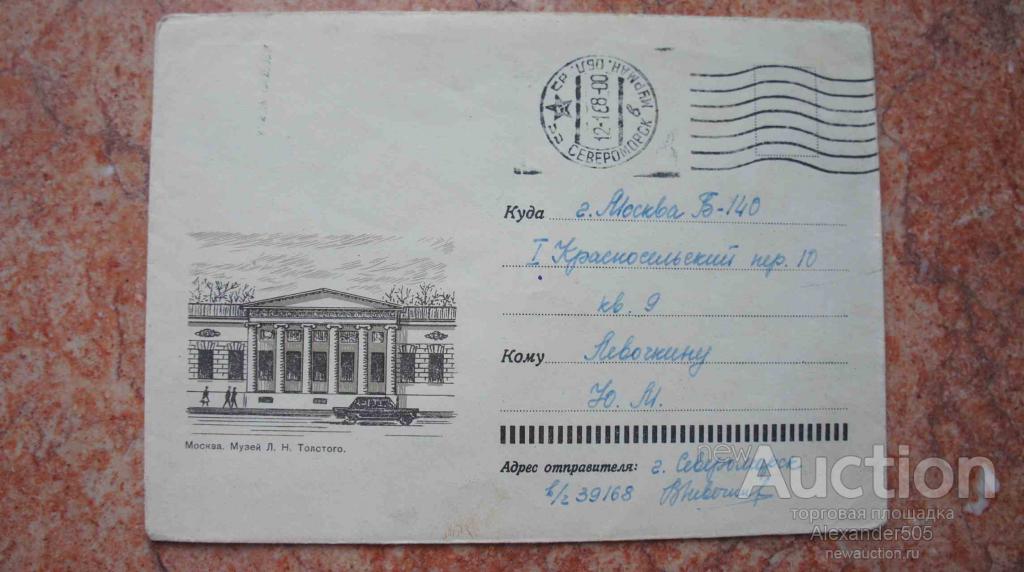 МУРМАН. ОБЛ.
12-1 68-00
8
СЕВЕРОМОРСК
Куда г. Москва Б-140
I Красносельский пер. 10
кв. 9
Кому Левочкину
Ю. М.
Москва. Музей Л. Н. Толстого.
Адрес отправителя: г. Североморск
в/ч 39168
newAuction
торговая площадка
Alexander505
newauction.ru